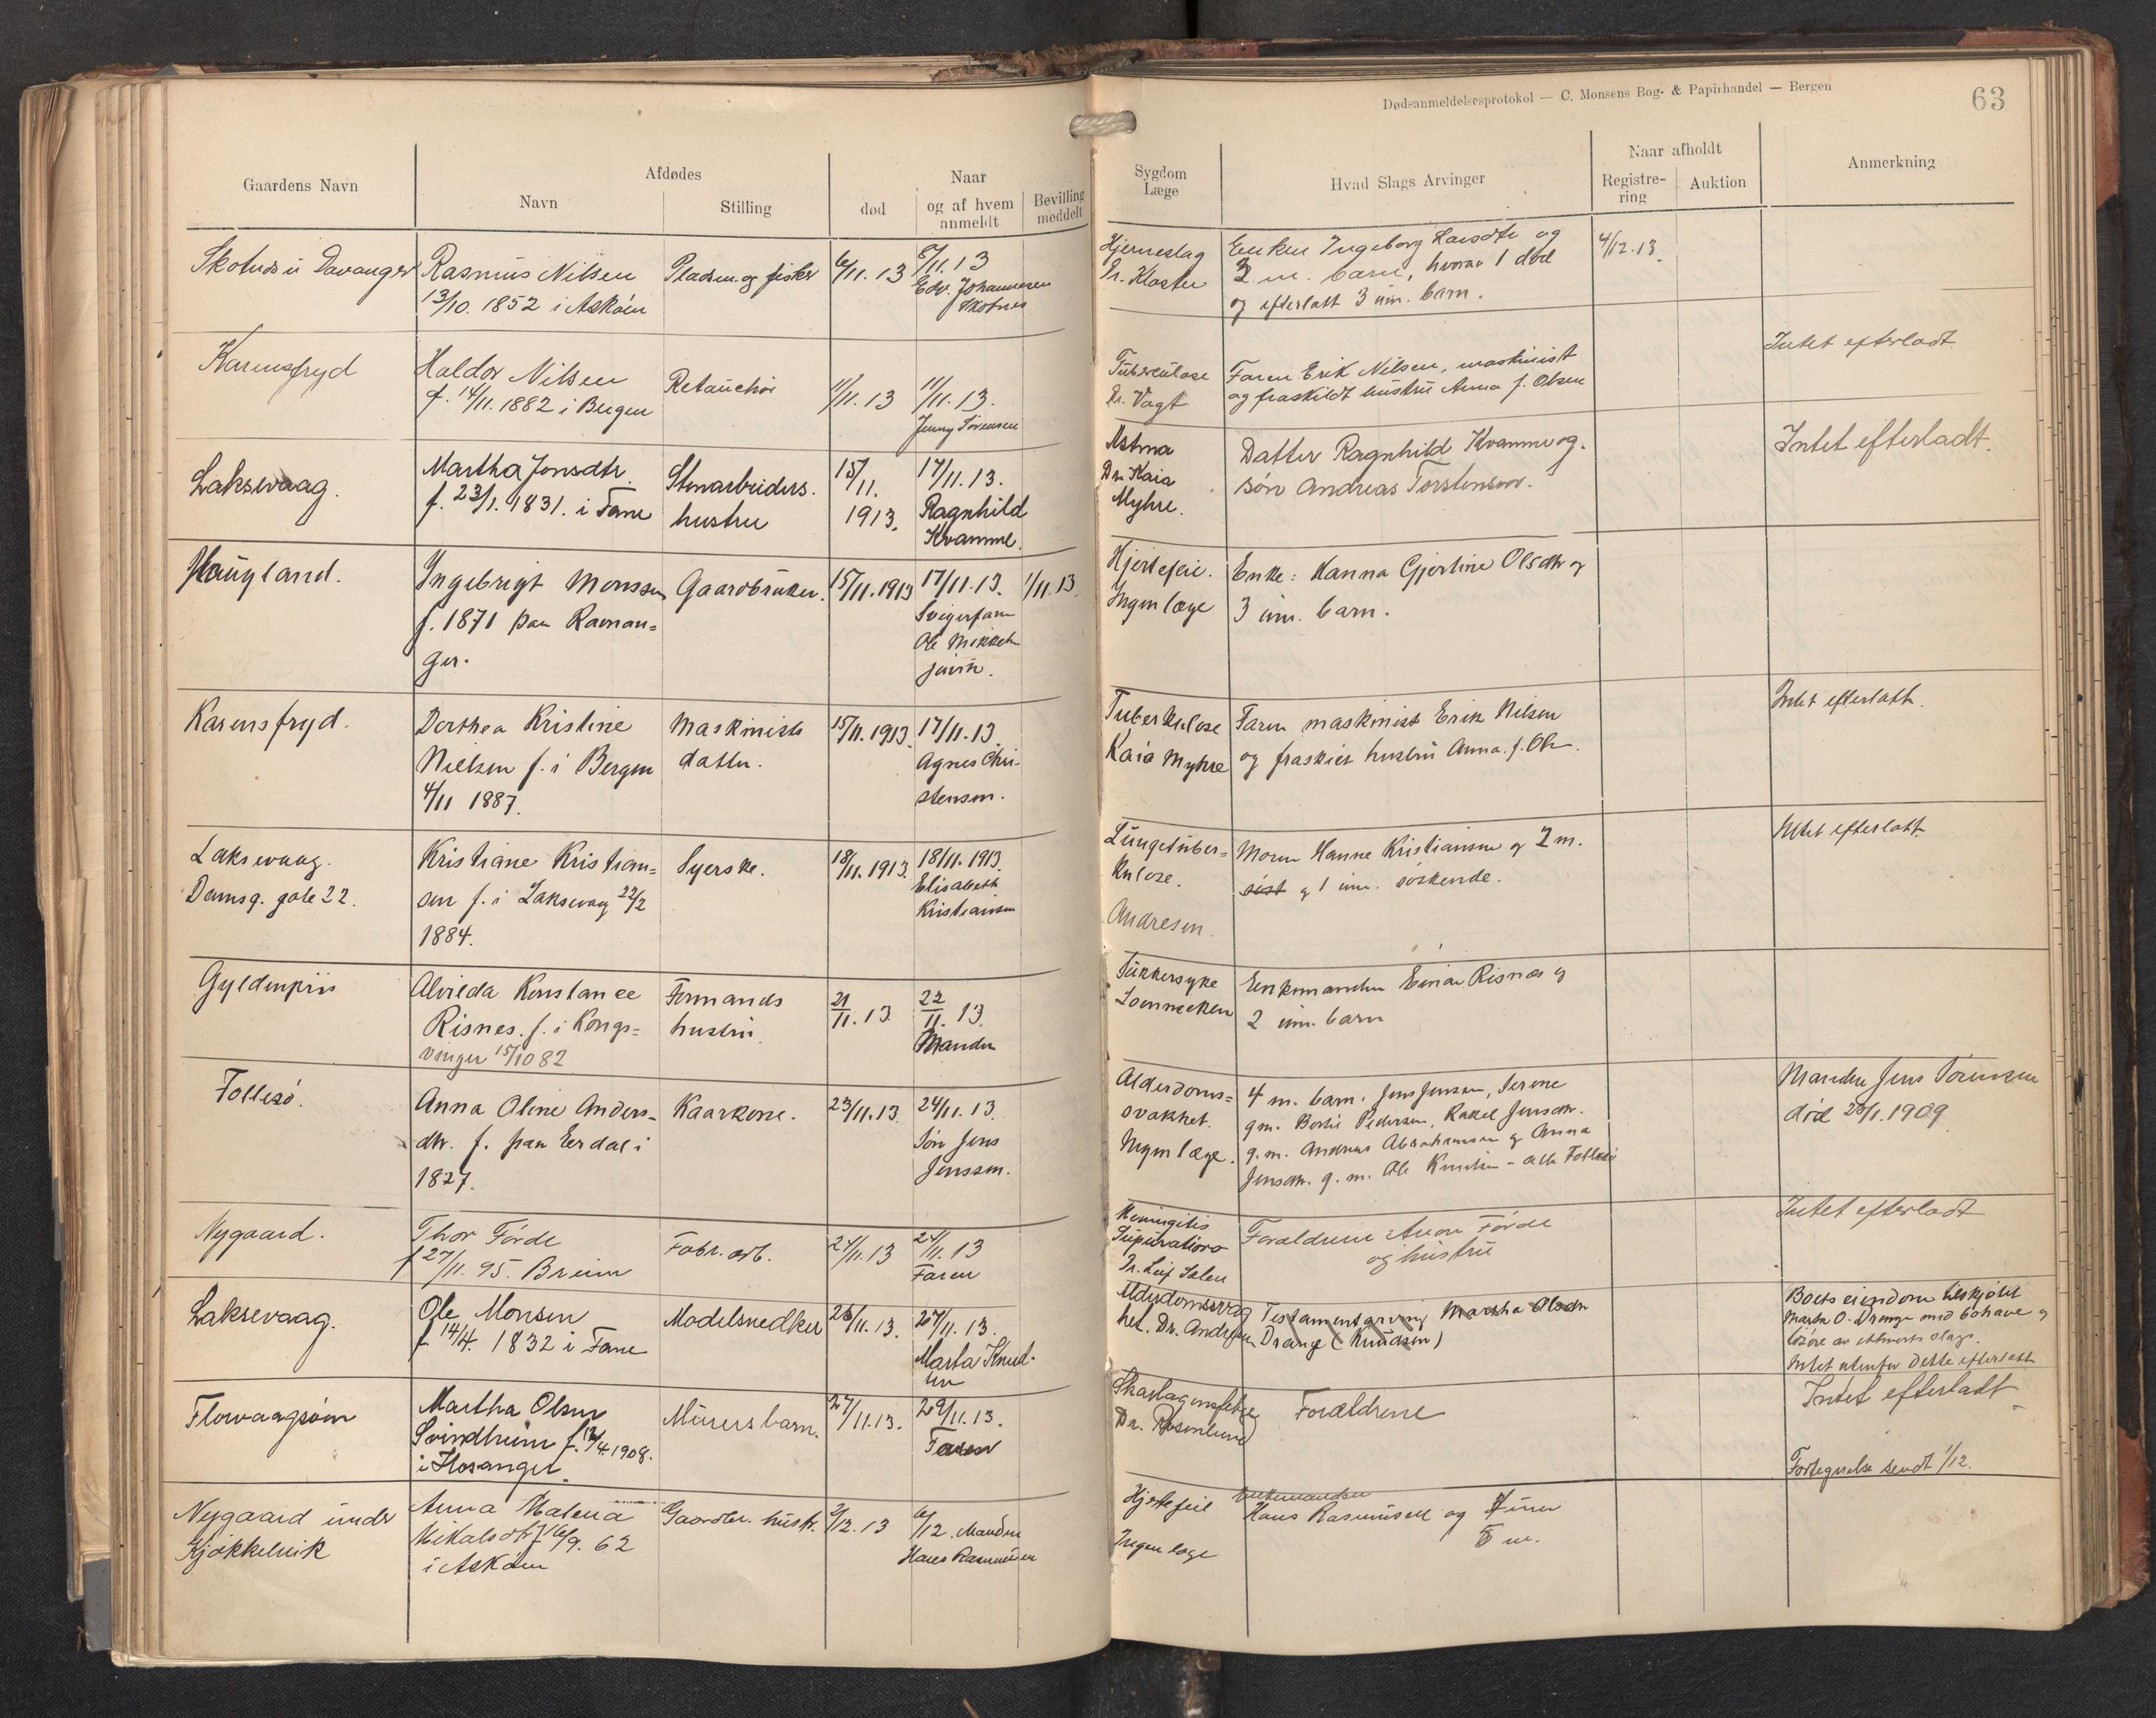 Dødsanmeldelsesprotokol — C. Monsens Bog- & Papirhandel — Bergen
63
Gaardens Navn
Afdødes
Navn
Stilling
død
Naar
og af hvem
anmeldt
Bevilling
meddelt
Sygdom
Læge
Hvad Slags Arvinger
Naar afholdt
Registre-
ring
Auktion
Anmerkning
Rasmus Nilsen
13/10. 1852 i Askøen
Pladsm. og fisker
6/11. 13
8/11. 13
Edv. Johannesen
Skotnes
Hjerneslag
Dr. Kloster
Enken Ingeborg og
m. barn, hvorav 1 død
og efterlatt 3 um. barn.
4/12. 13.
Karensfryd
Haldor Nilsen
f. 14/11. 1882 i Bergen
Retauchør
11/11. 13
11/11. 13.
Jenny Sørensen
Tuberculose
Dr. Vogt
Faren Erik Nilsen, maskinist
og fraskildt hustru Anna f. Olsen
Intet efterladt.
Laksevaag.
Martha Jonsdtr.
f. 23/1. 1831. i Fane
Stenarbeiders.
hustru
15/11.
1913.
17/11. 13.
Ragnhild
Kvamme.
Astma
Dr. Kaia
Myhre.
Datter Ragnhild Kvamme og.
søn Andreas Torstensen.
Intet efterladt.
Haugland.
Ingebrigt Monssen
f. 1871 paa Raman=
ger.
Gaardbruker.
15/11. 1913
17/11. 13.
Svigerfaren
Ole Mikkel
1/11. 13.
Hjertefeil.
Ingen læge
Enke: Hanna Gjertine Olsdtr og
3 um. barn.
Karensfryd.
Dorthea Kristine
Nielsen f. i Bergen
4/11 1887.
Maskinists
datter.
15/11. 1913.
17/11. 13
Agnes Chri-
stensen.
Tuberkulose
Kaia Myhre
Faren maskinist Erik Nilsen
og fraskilt hustru Anna. f. Ols.
Intet efterlatt.
Laksevaag.
Damsg. gate 22.
Kristiane Kristian=
sen f. i Laksevaag 22/2
1884.
Syerske.
18/11. 1913.
18/11. 1913.
Elisabeth
Kristiansen
Lungetuber=
kulose.
Andresen.
Moren Hanne Kristiansen og 2 m.
søst og 1 um. søskende.
Intet efterlatt.
Gyldenpris
Alvilda Konstance
Risnes. f. i Kongs=
vinger 15/10 82
Formands
hustru.
21/11. 13.
22/11. 13.
Manden
Sukkersyke
Loennecken
Enkemanden Einar Risnes og
2 um. barn
Follesø.
Anna Oline Anders-
dtr. f. paa Eerdal i
1827.
Kaarkone.
23/11. 13.
24/11. 13.
Søn Jens
Jenssen.
Alderdoms=
svakhet.
Ingen læge.
4 m. barn. Jens Jensen, Serene
gm. Bertil Pedersen, Rakel Jensdtr.
g.m. Andreas Abrahamsen og Anna
Jensdtr. g. m. Ole Knudsen - alle Follesø
Manden Jens Sørensen
død 28/1. 1909.
Nygaard.
Thor Førde
f 27/11. 95. Breim
Fabr. arb.
24/11. 13
24/11. 13
Faren
Meningitis
Dr. Leif Salen
Foreldrene Aron Førde
og hustru
Intet efterladt
Laksevaag.
Ole Monsen
f. 14/4. 1832 i Fane
Modelsnedker
26/11. 13.
27/11. 13.
Marta Knud-
sen
Alderdomssvag
het. Dr. Andresen
Testamentarving Martha Olsdtr
Drange (Knudsen)
Boets eiendom tilskjøtet
Marta O. Drange med bohave og
løsøre av ethvert slags.
Intet utenfor dette efterlatt
Flowaagsøen
Martha Olsen
Svindheim f. 12/4. 1908.
i Hosanger.
Murers barn.
27/11. 13.
29/11. 13.
Faren
Skarlagensfeber
Dr. Rosenlund
Forældrene
Intet efterladt
Fortegnelse sendt 1/12.
Nygaard under
Kjøkkelvik
Anna Malena
Mikalsdtr f. 16/9. 62
i Askøen
Gaardbr. hustr.
2/12. 13
6/12. Manden
Hans Rasmussen
Hjertefeil
Ingen læge
Enkemanden
Hans Rasmussen og umn
5 m.